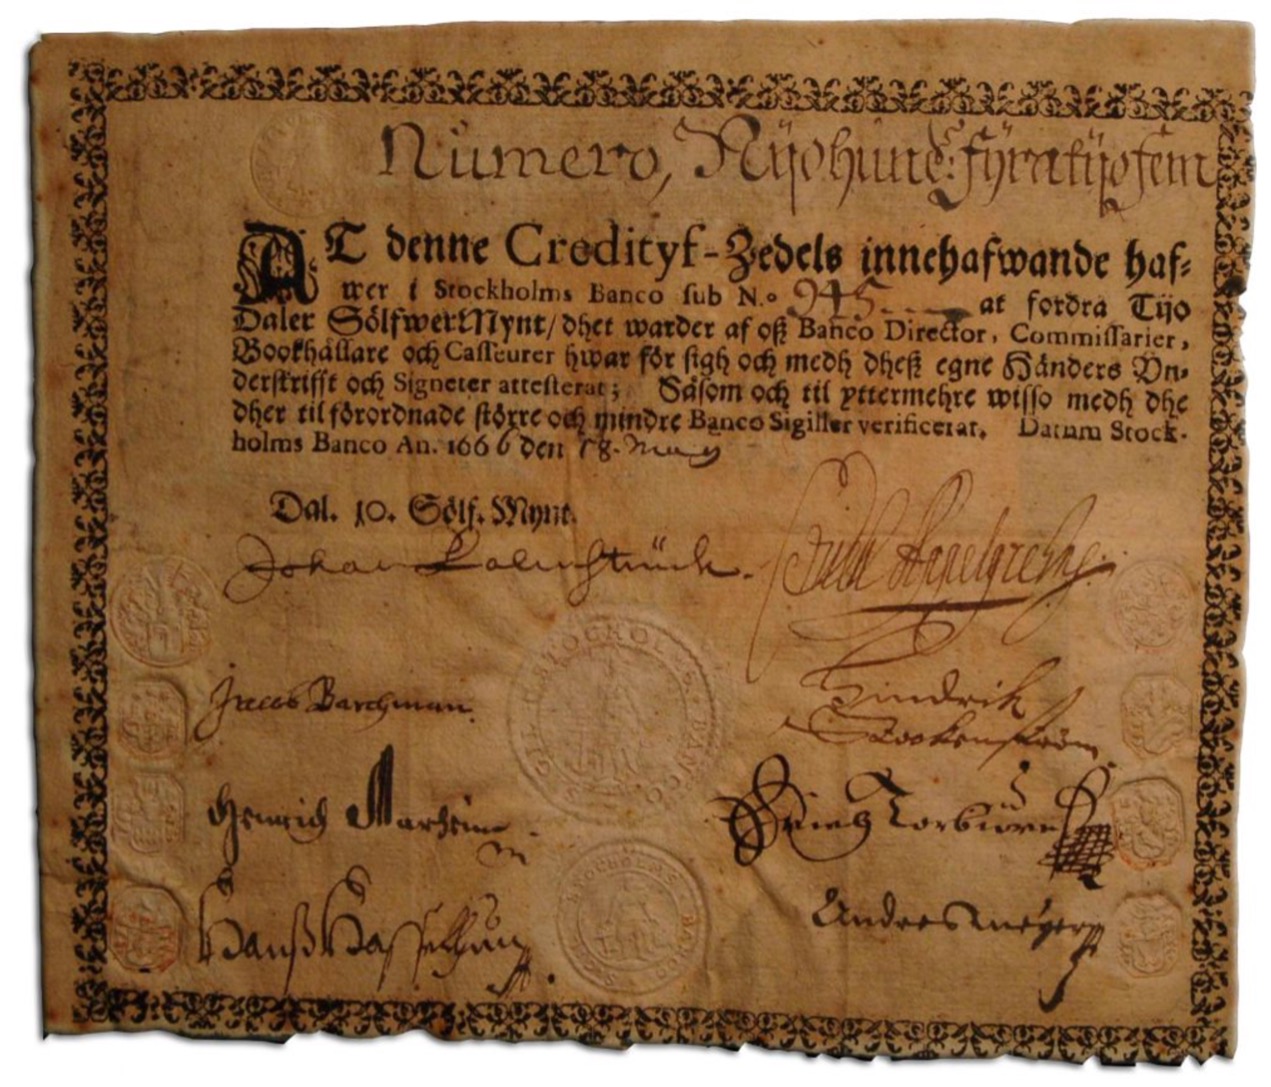 Numero, Nijohund: fyratijofem
AT denne Credityf-Zedels innehafwande haf-
wer i Stockholms Banco sub N.o 945 at fordra Tijo
Daler SölfwerMynt/ dhet warder af oß Banco Director, Commissarier,
Bookhållare och Casseurer hwar för sigh och medh dheß egne Händers Un-
derskrifft och Signeter attesterat; Såsom och til yttermehre wisso medh dhe
dher til förordnade större och mindre Banco Sigiller verificerat. Datum Stock-
holms Banco An. 1666 den 18. May
Dal. 10. Sölf. Mynt.
Johan Palmstrüch.
Appelgreen
Jacob Barchman
Hindrik
Henrich
Hanß
Anders Meijer
STOCKHOLMS BANCO
STOCKHOLMS BANCO